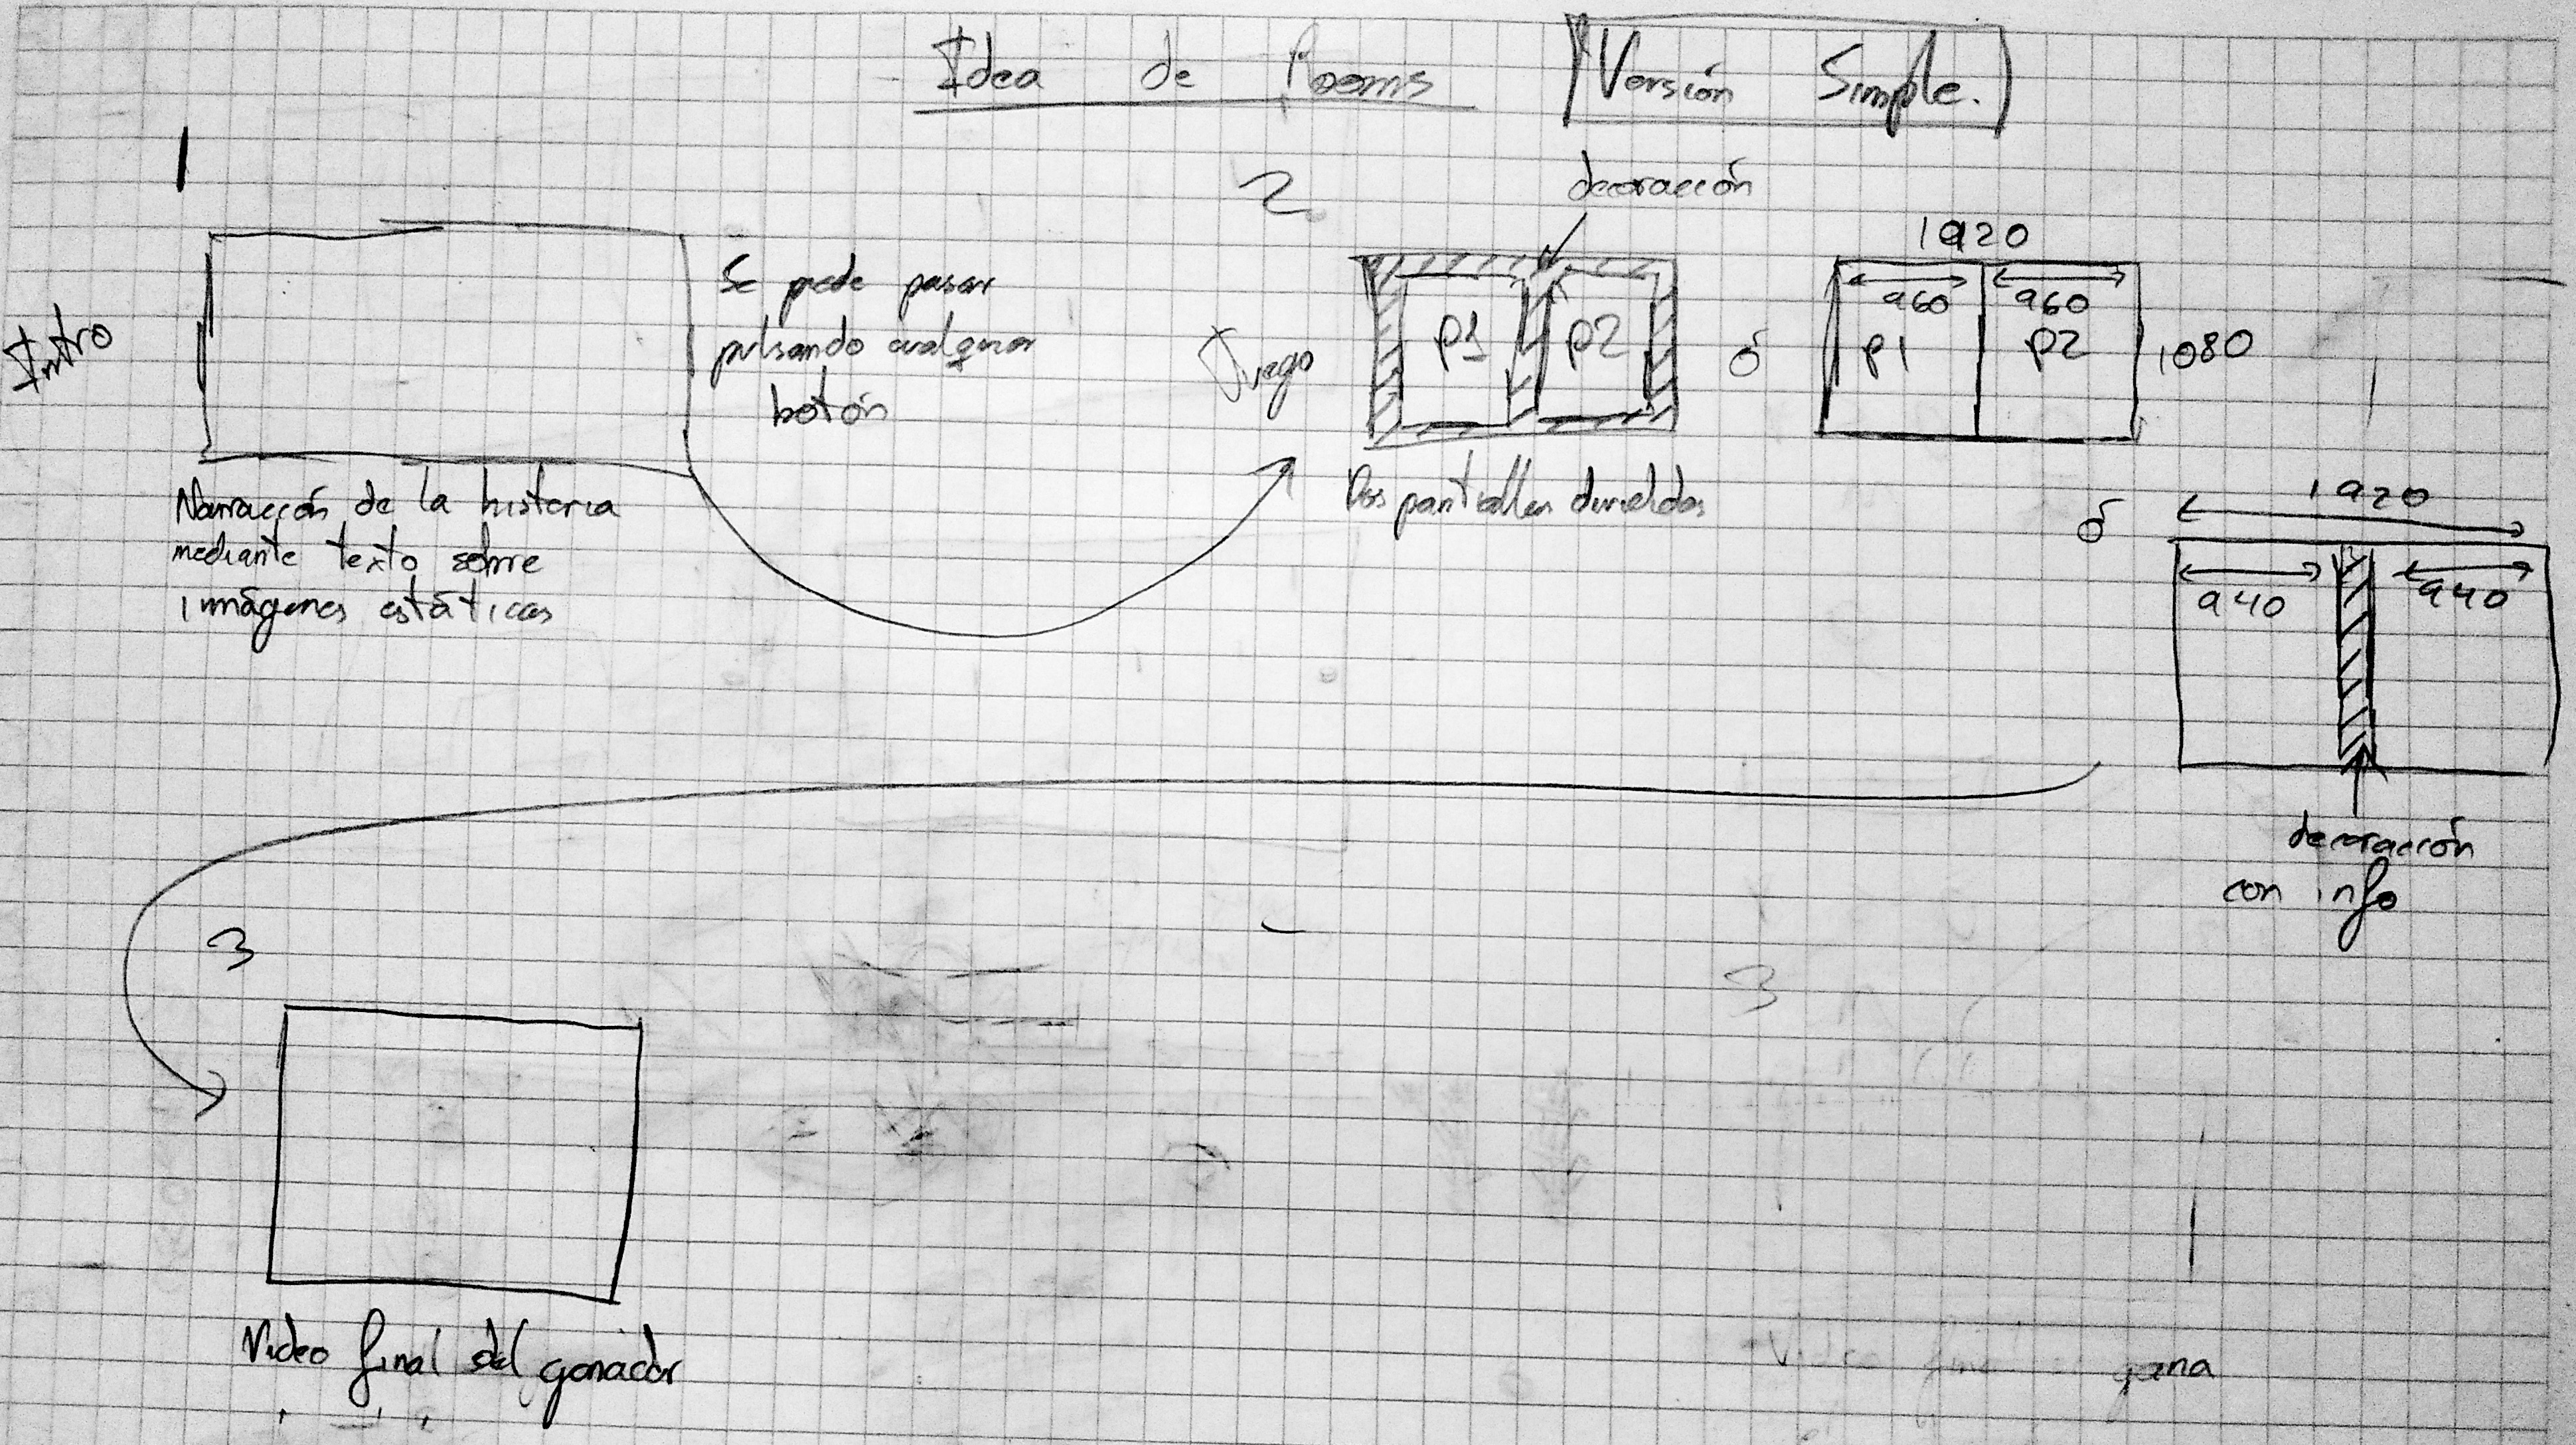 Idea de Poems
Versión Simple.
1
Intro
Se puede pasar
pulsando cualquier
botón
Narración de la historia
mediante texto sobre
imágenes estáticas
2
decoración
Juego
P1
P2
Dos pantallas divididas
ó
1920
960
960
P1
P2
1080
ó
1920
940
940
decoración
con info
3
3
Video final del ganador
gana